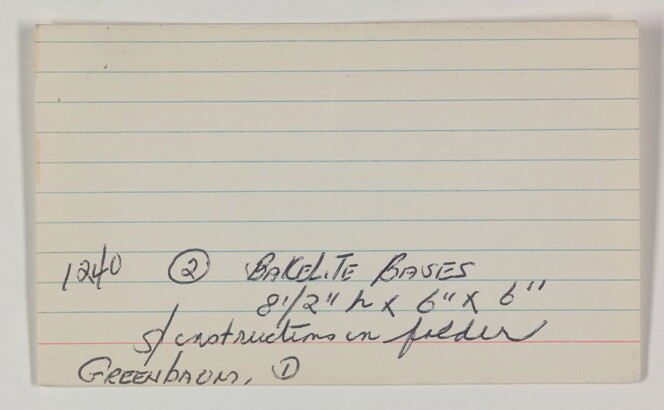 1240 ② BAKELITE BASES
8 1/2" h x 6" x 6"
s/ constructions in folder
GREENBAUM, ①